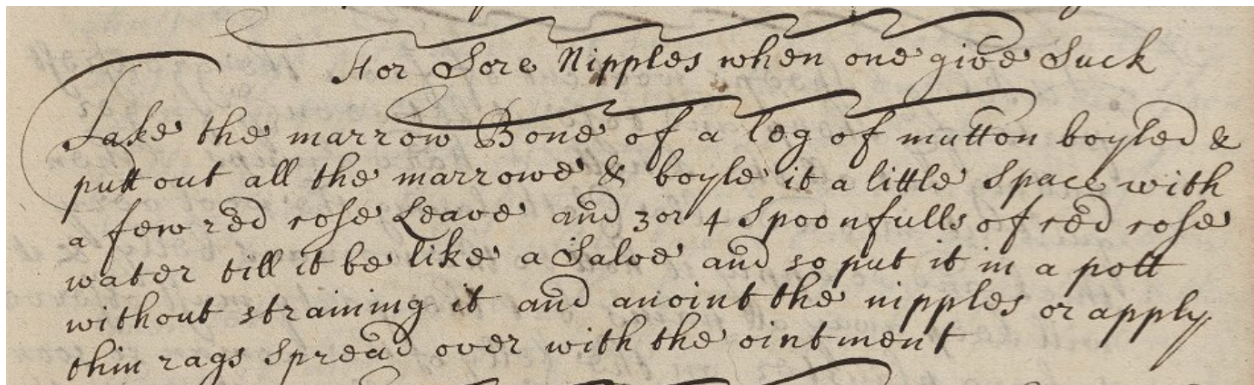 For Sore Nipples when one give Suck
Take the marrow Bone of a leg of mutton boyled &
putt out all the marrowe & boyle it a little space with
a few red rose Leave and 3 or 4 Spoonfulls of red rose
water till it be like a Salve and so put it in a pott
without straining it and anoint the nipples or apply
thin rags Spread over with the ointment